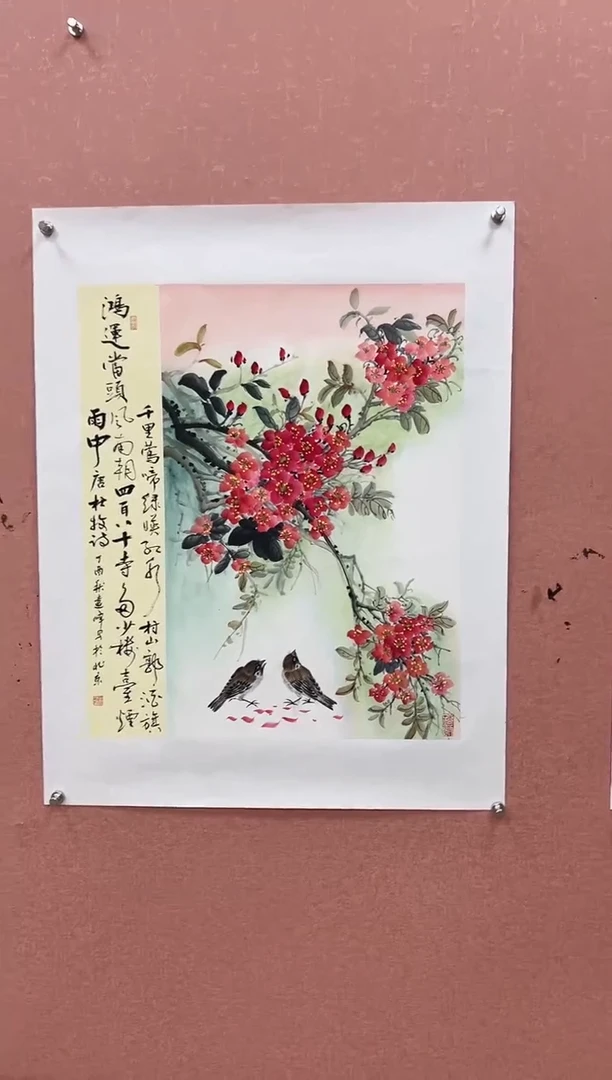 鴻運當頭
千里鶯啼綠映红水村山郭酒旗
风南朝四百八十寺多少楼臺煙
雨中 唐杜牧诗 丁酉秋 写於北京